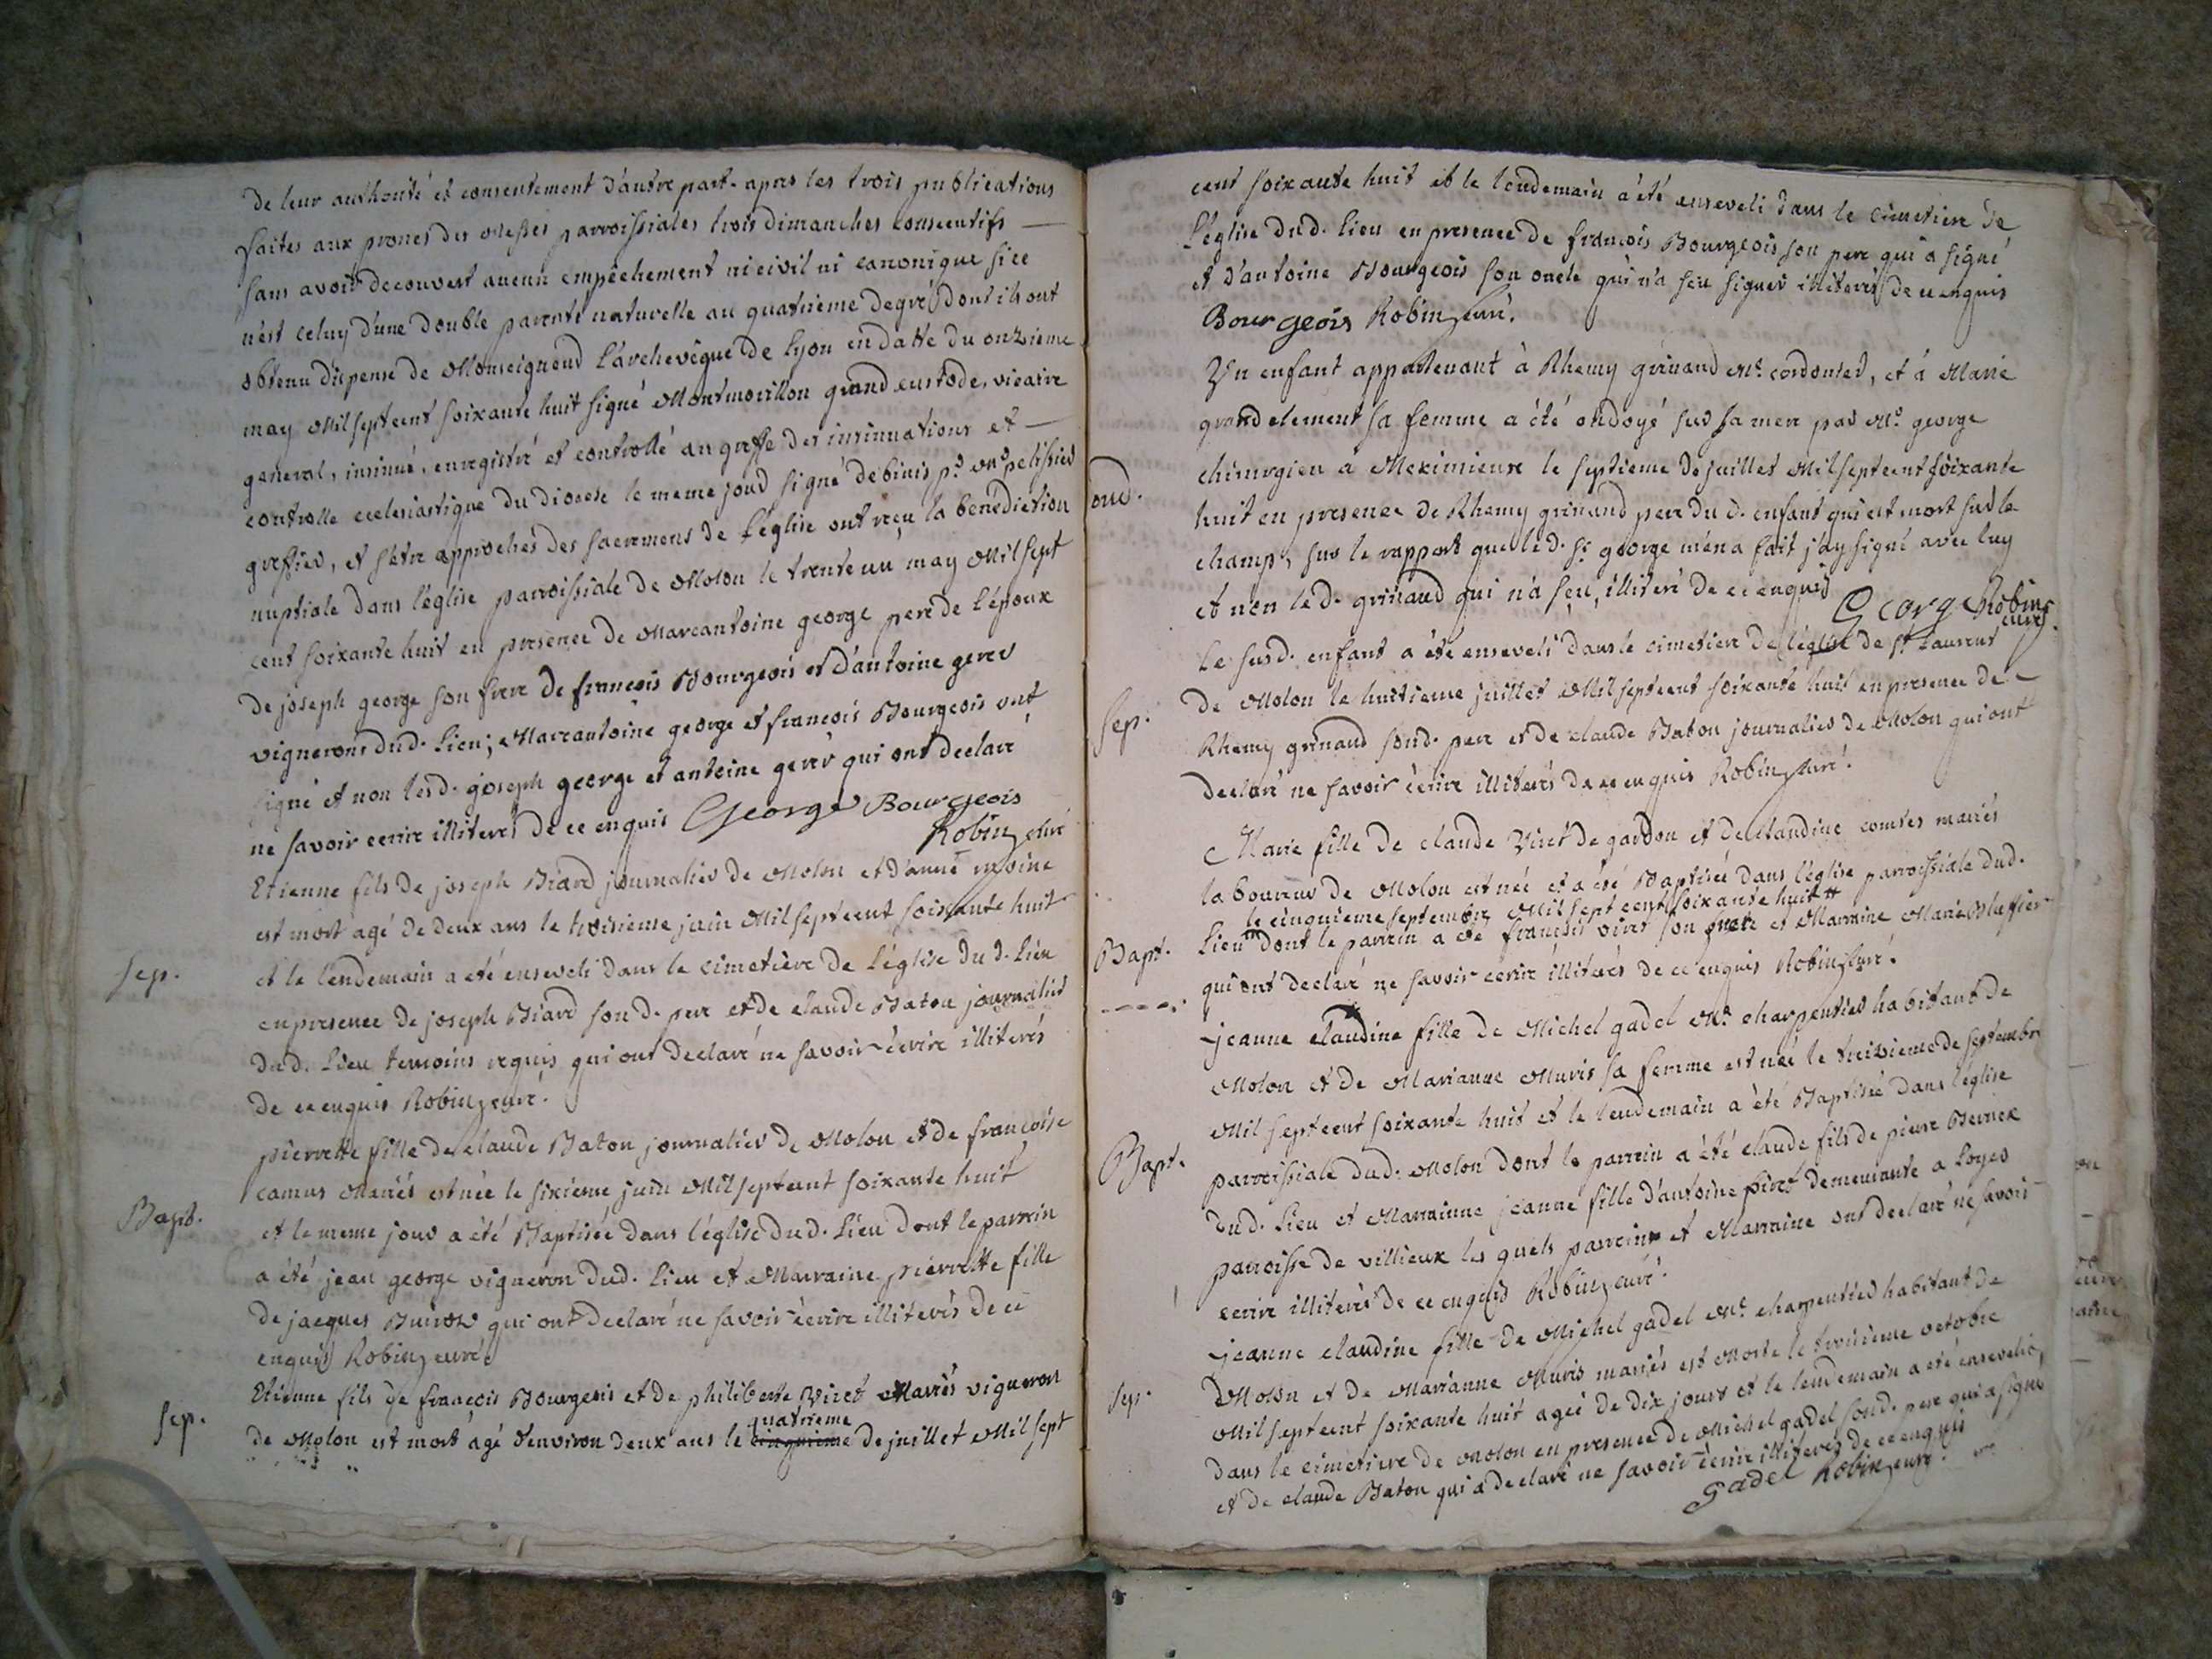 de leur authorité et consentement d'autre part. apres les trois publications
faites aux prones des Messes parroissiales trois dimanches consecutifs
sans avoir decouvert aucun empêchement ni civil ni canonique si ce
n'est celuy d'une double parenté naturelle au quatrieme degré dont ils ont
obtenu dispense de Monseigneur L'archevêque de Lyon en datte du onzieme
may Mil septcent soixante huit signé Montmorillon grand custode, vicaire
general, insinué, enregistré et controllé au greffe des insinuations et
controlle ecclesiastique du diocese le meme jour signé debinis pr. Mr pelissier
greffier, et s'etre approchés des sacremens de L'église ont reçu la benediction
nuptiale dans l'église parroissiale de Molon le trente un may Mil sept
cent soixante huit en presence de Marcantoine george pere de L'époux
de joseph george son frere de francois Bourgeois et d'antoine gerer
vignerons dud. Lieu; Marcantoine george et francois Bourgeois ont
signé et non lesd. joseph george et antoine gerer qui ont declaré
ne savoir ecrire illiterés de ce enquis George Bourgeois
Robin curé
Etienne fils de joseph Biard journalier de Molon et d'anne
est mort agé de deux ans le troisieme juin Mil septcent soixante huit
sep.
et le lendemain a été enseveli dans le cimetière de L'église dud. Lieu
en presence de joseph Biard son d. pere et de claude Baton journalier
dud. Lieu temoins requis qui ont declaré ne savoir écrire illiterés
de ce enquis Robin curé.
pierrette fille de claude Baton journalier de Molon et de francoise
camus Mariés est née le sixieme juin Mil septcent soixante huit
Bapt.
et le meme jour a été Baptisée dans l'église dud. Lieu dont le parrein
a été jean george vigneron dud. Lieu et Marraine pierrette fille
de jacques qui ont declaré ne savoir écrire illiterés de ce
enquis Robin curé
Etienne fils de francois Bourgeois et de philiberte Viret Mariés vigneron
sep.
quatrieme
de Molon est mort agé d'environ deux ans le cinquieme de juillet Mil sept
cent soixante huit et le lendemain a été enseveli dans le cimetiere de
L'église dud. Lieu en presence de francois Bourgeois son pere qui a signé
et d'antoine Bourgeois son oncle qui n'a seu signer illiterés de ce enquis
Bourgeois Robin curé.
Un enfant appartenant à Rhemy grinand Mr. cordonier, et à Marie
grandclement sa femme a été ondoyé sur sa mere par Mr. george
chirurgien à Meximieux le septieme de juillet Mil septcent soixante
ond.
huit en presence de Rhemy grinand pere dud. enfant qui est mort sur le
champ, sur le rapport que led. sr. george m'en a fait j'ay signé avec luy
et non led. grinaud qui n'a seu, illiteré de ce enquis
George Robin
curé.
Le susd. enfant a été enseveli dans le cimetiere de l'église de st Laurent
sep.
de Molon le huitieme juillet Mil septcent soixante huit en presence de
Rhemy grinand sond. pere et de claude Baton journalier de Molon qui ont
declaré ne savoir écrire illiterés de ce enquis Robin curé.
Marie fille de claude Viret de gardon et de claudine comtes mariés
laboureur de Molon est née et a été Baptisée dans l'église parroissiale dud.
le cinquieme septembre Mil sept cent soixante huit
Bapt.
Lieu dont le parrein a été francois viret son frere et Marraine Marie
qui ont declaré ne savoir ecrire illiterés de ce enquis Robin curé.
jeanne claudine fille de Michel gadel Mr. charpentier habitant de
Molon et de Marianne Muris sa femme est née le treizieme de septembre
Mil septcent soixante huit et le lendemain a été Baptisée dans l'église
Bapt.
parroissiale dud. Molon dont le parrein a été claude fils de pierre Bernex
dud. Lieu et Marrainne jeanne fille d'antoine viret demeurante a Loyes
parroisse de villieux les quels parrein et Marraine ont declaré ne savoir
ecrire illiterés de ce enquis Robin curé.
jeanne claudine fille de Michel gadel Mr. charpentier habitant de
sep.
Molon et de Marianne Muris mariés est Morte le troisieme octobre
Mil septcent soixante huit agée de dix jours et le lendemain a été ensevelie
dans le cimetiere de Molon en presence de Michel gadel sond. pere qui a signé
et de claude Baton qui a declaré ne savoir écrire illiterés de ce enquis
gadel Robin curé.